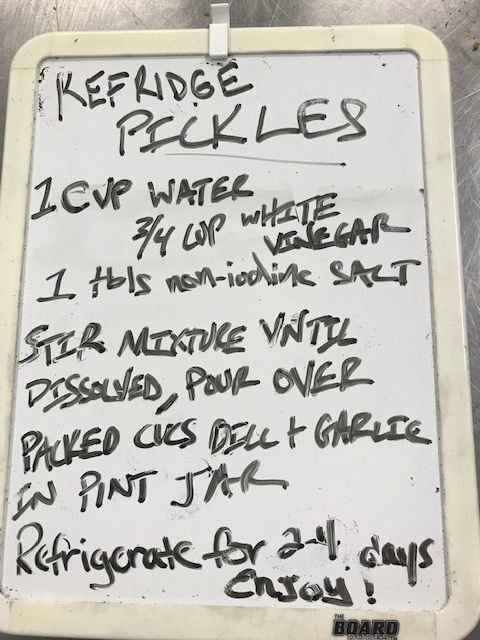 REFRIDGE
PICKLES
1 CUP WATER
3/4 CUP WHITE
VINEGAR
1 tbls non-iodine SALT
STIR MIXTURE UNTIL
DISSOLVED, POUR OVER
PACKED CUCS DILL + GARLIC
IN PINT JAR
Refrigerate for 2-4 days
enjoy!
THE
BOARD